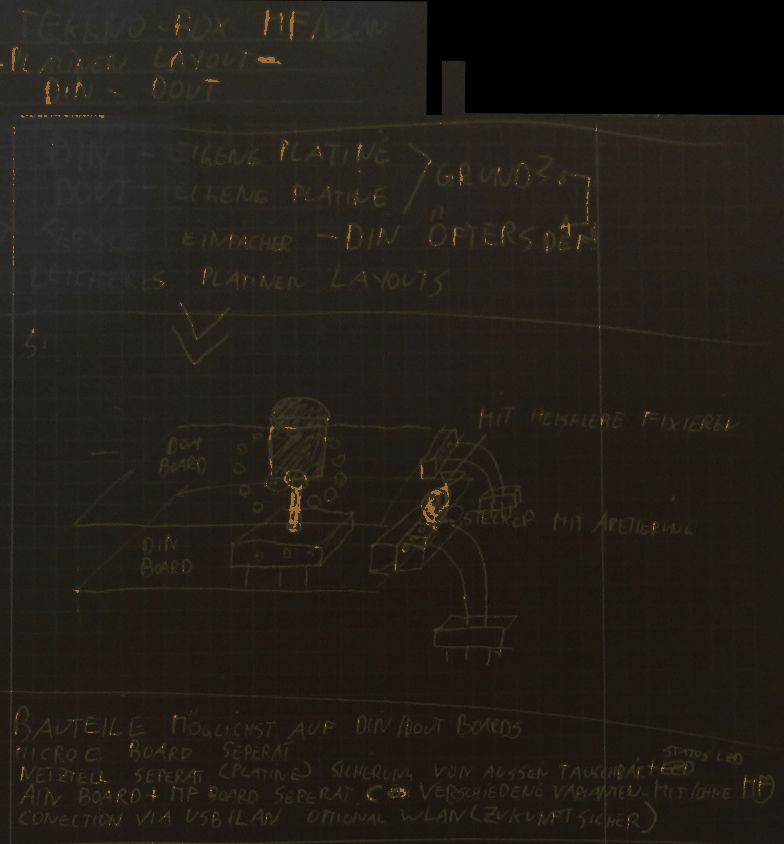 TEKKNO-BOX MF
-PLATINEN LAYOUT-
DIN - DOUT
DIN - EIGENE PLATINE
DOUT - EIGENE PLATINE
GRUND?
EINFACHER - DIN ÖFTERS
LEICHTERES PLATINEN LAYOUTS
MIT HEISKLEBE FIXIEREN
DOUT
BOARD
STECKER MIT ARETIERUNG
DIN
BOARD
BAUTEILE MÖGLICHST AUF DIN/DOUT BOARDS
MICRO C BOARD SEPERAT
STATUS LED
NETZTEIL SEPERAT (PLATINE) SICHERUNG VON AUSSEN TAUSCHBAR
AIN BOARD + MF BOARD SEPERAT VERSCHIEDENE VARIANTEN MIT/OHNE MF
CONECTION VIA USB/LAN OPTIONAL WLAN (ZUKUNFTSICHER)